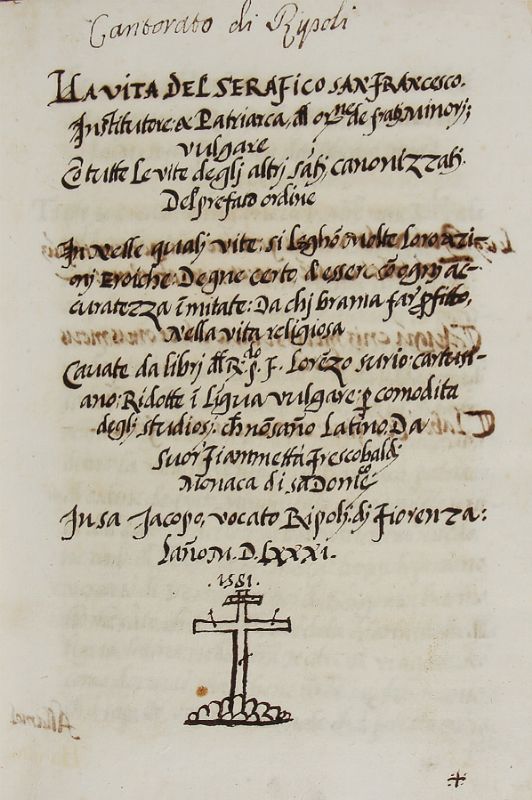 Cantorato di Ripoli
LA VITA DEL SERAFICO SAN FRANCESCO.
Institutore & Patriarca, dll orne de frati Minorj;
vulgare
Cō tutte Le vite deglj altrj sātj canonizzatj.
Del prefato ordine
In nelle qualj vite: si Leghō Molte Loro azi-
onj Eroiche: Degne certo d'essere cō ognj ac-
curatezza īmitate: Da chj brama far profitto,
Nella vita religiosa
Cavate da librj dll R.do p. f. Lorēzo surio: cartusi-
ano: Ridotte ī Līgua vulgare: p comodita
deglj studiosj, ch nō sāno Latino. Da
Suor Fiammetta Frescobaldj
Monaca di sā Domco
In sā Jacopo, vocato Ripolj: dj Fiorenza:
Lāno M. D. LXXXI.
.1581.